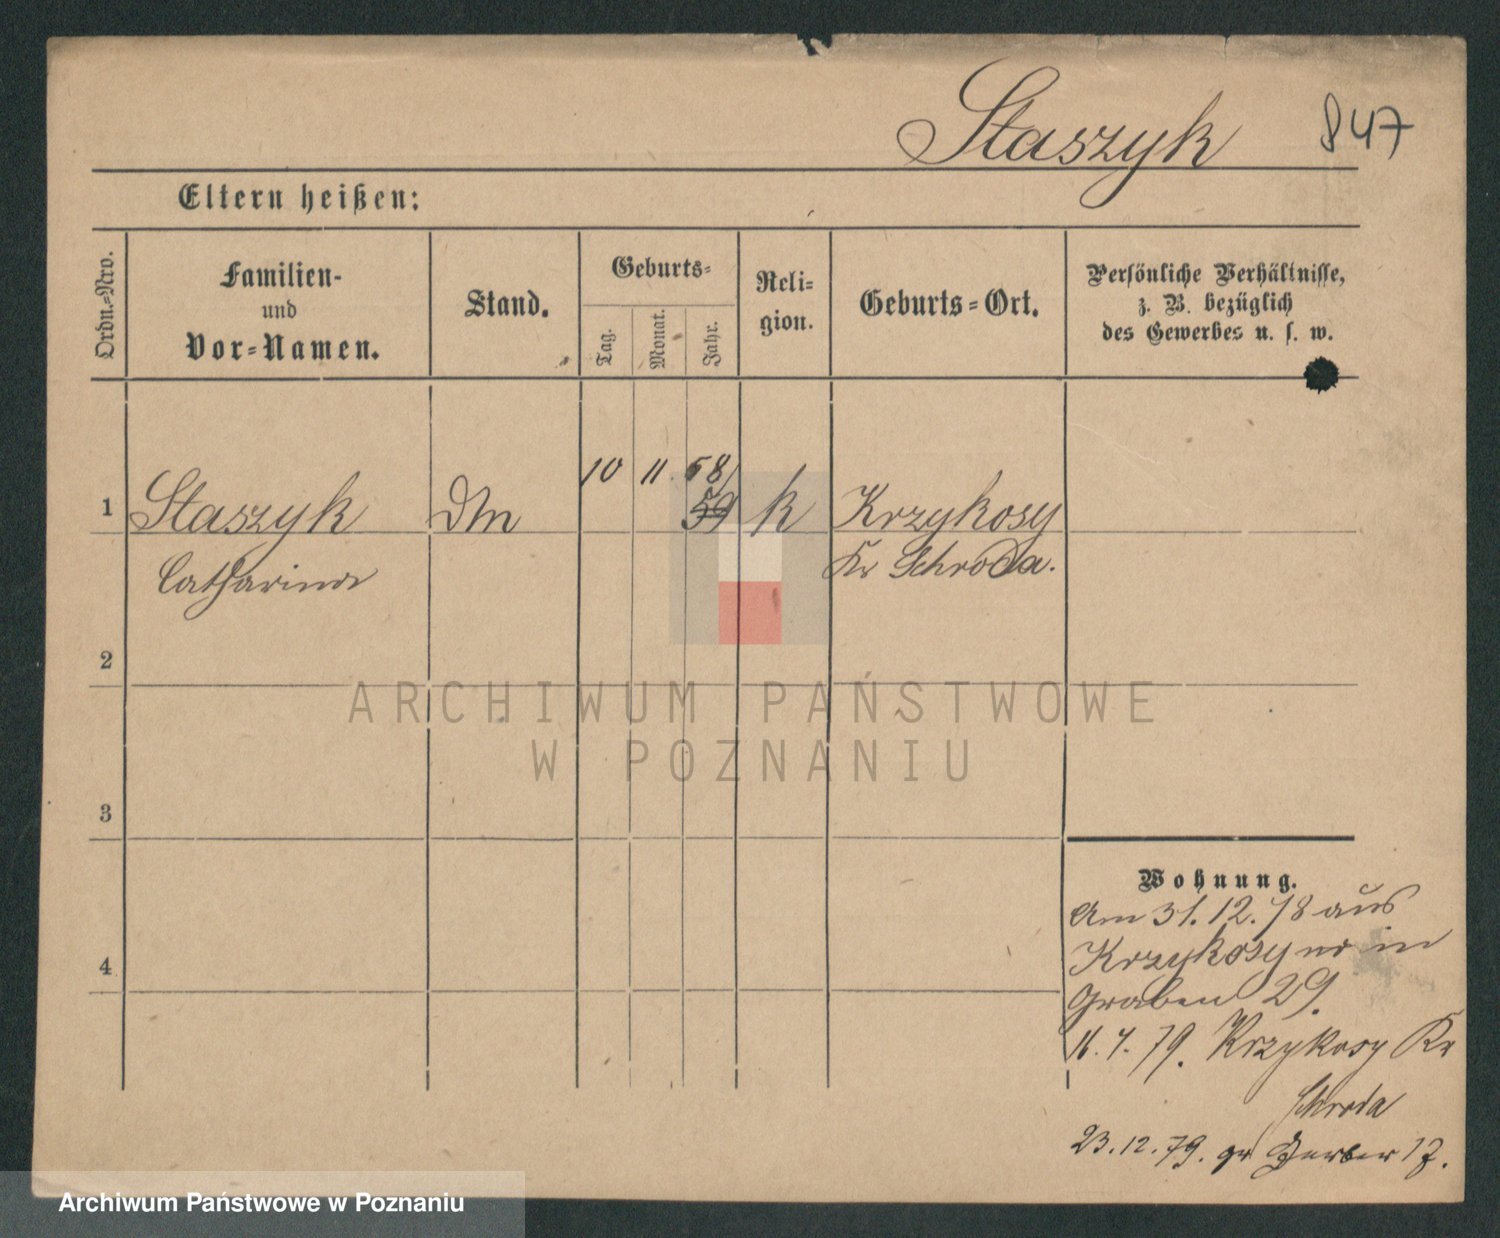 Staszyk 847
Eltern heißen:
Ordn.-Nro.
Familien-
und
Vor-Namen.
Stand.
Geburts-
Tag.
Monat.
Jahr.
Reli-
gion.
Geburts-Ort.
Persönliche Verhältnisse,
z. B. bezüglich
des Gewerbes u. s. w.
10 11. 58/
1 Staszyk Dm 59 k Krzykosy
Catharina Kr Schroda.
2
ARCHIWUM PAŃSTWOWE
W POZNANIU
3
Wohnung.
Am 31.12.78 aus
4 Krzykosy in
Graben 29.
11.7.79. Krzykosy Kr
Schroda
23.12.79. gr Gerber 17.
Archiwum Państwowe w Poznaniu